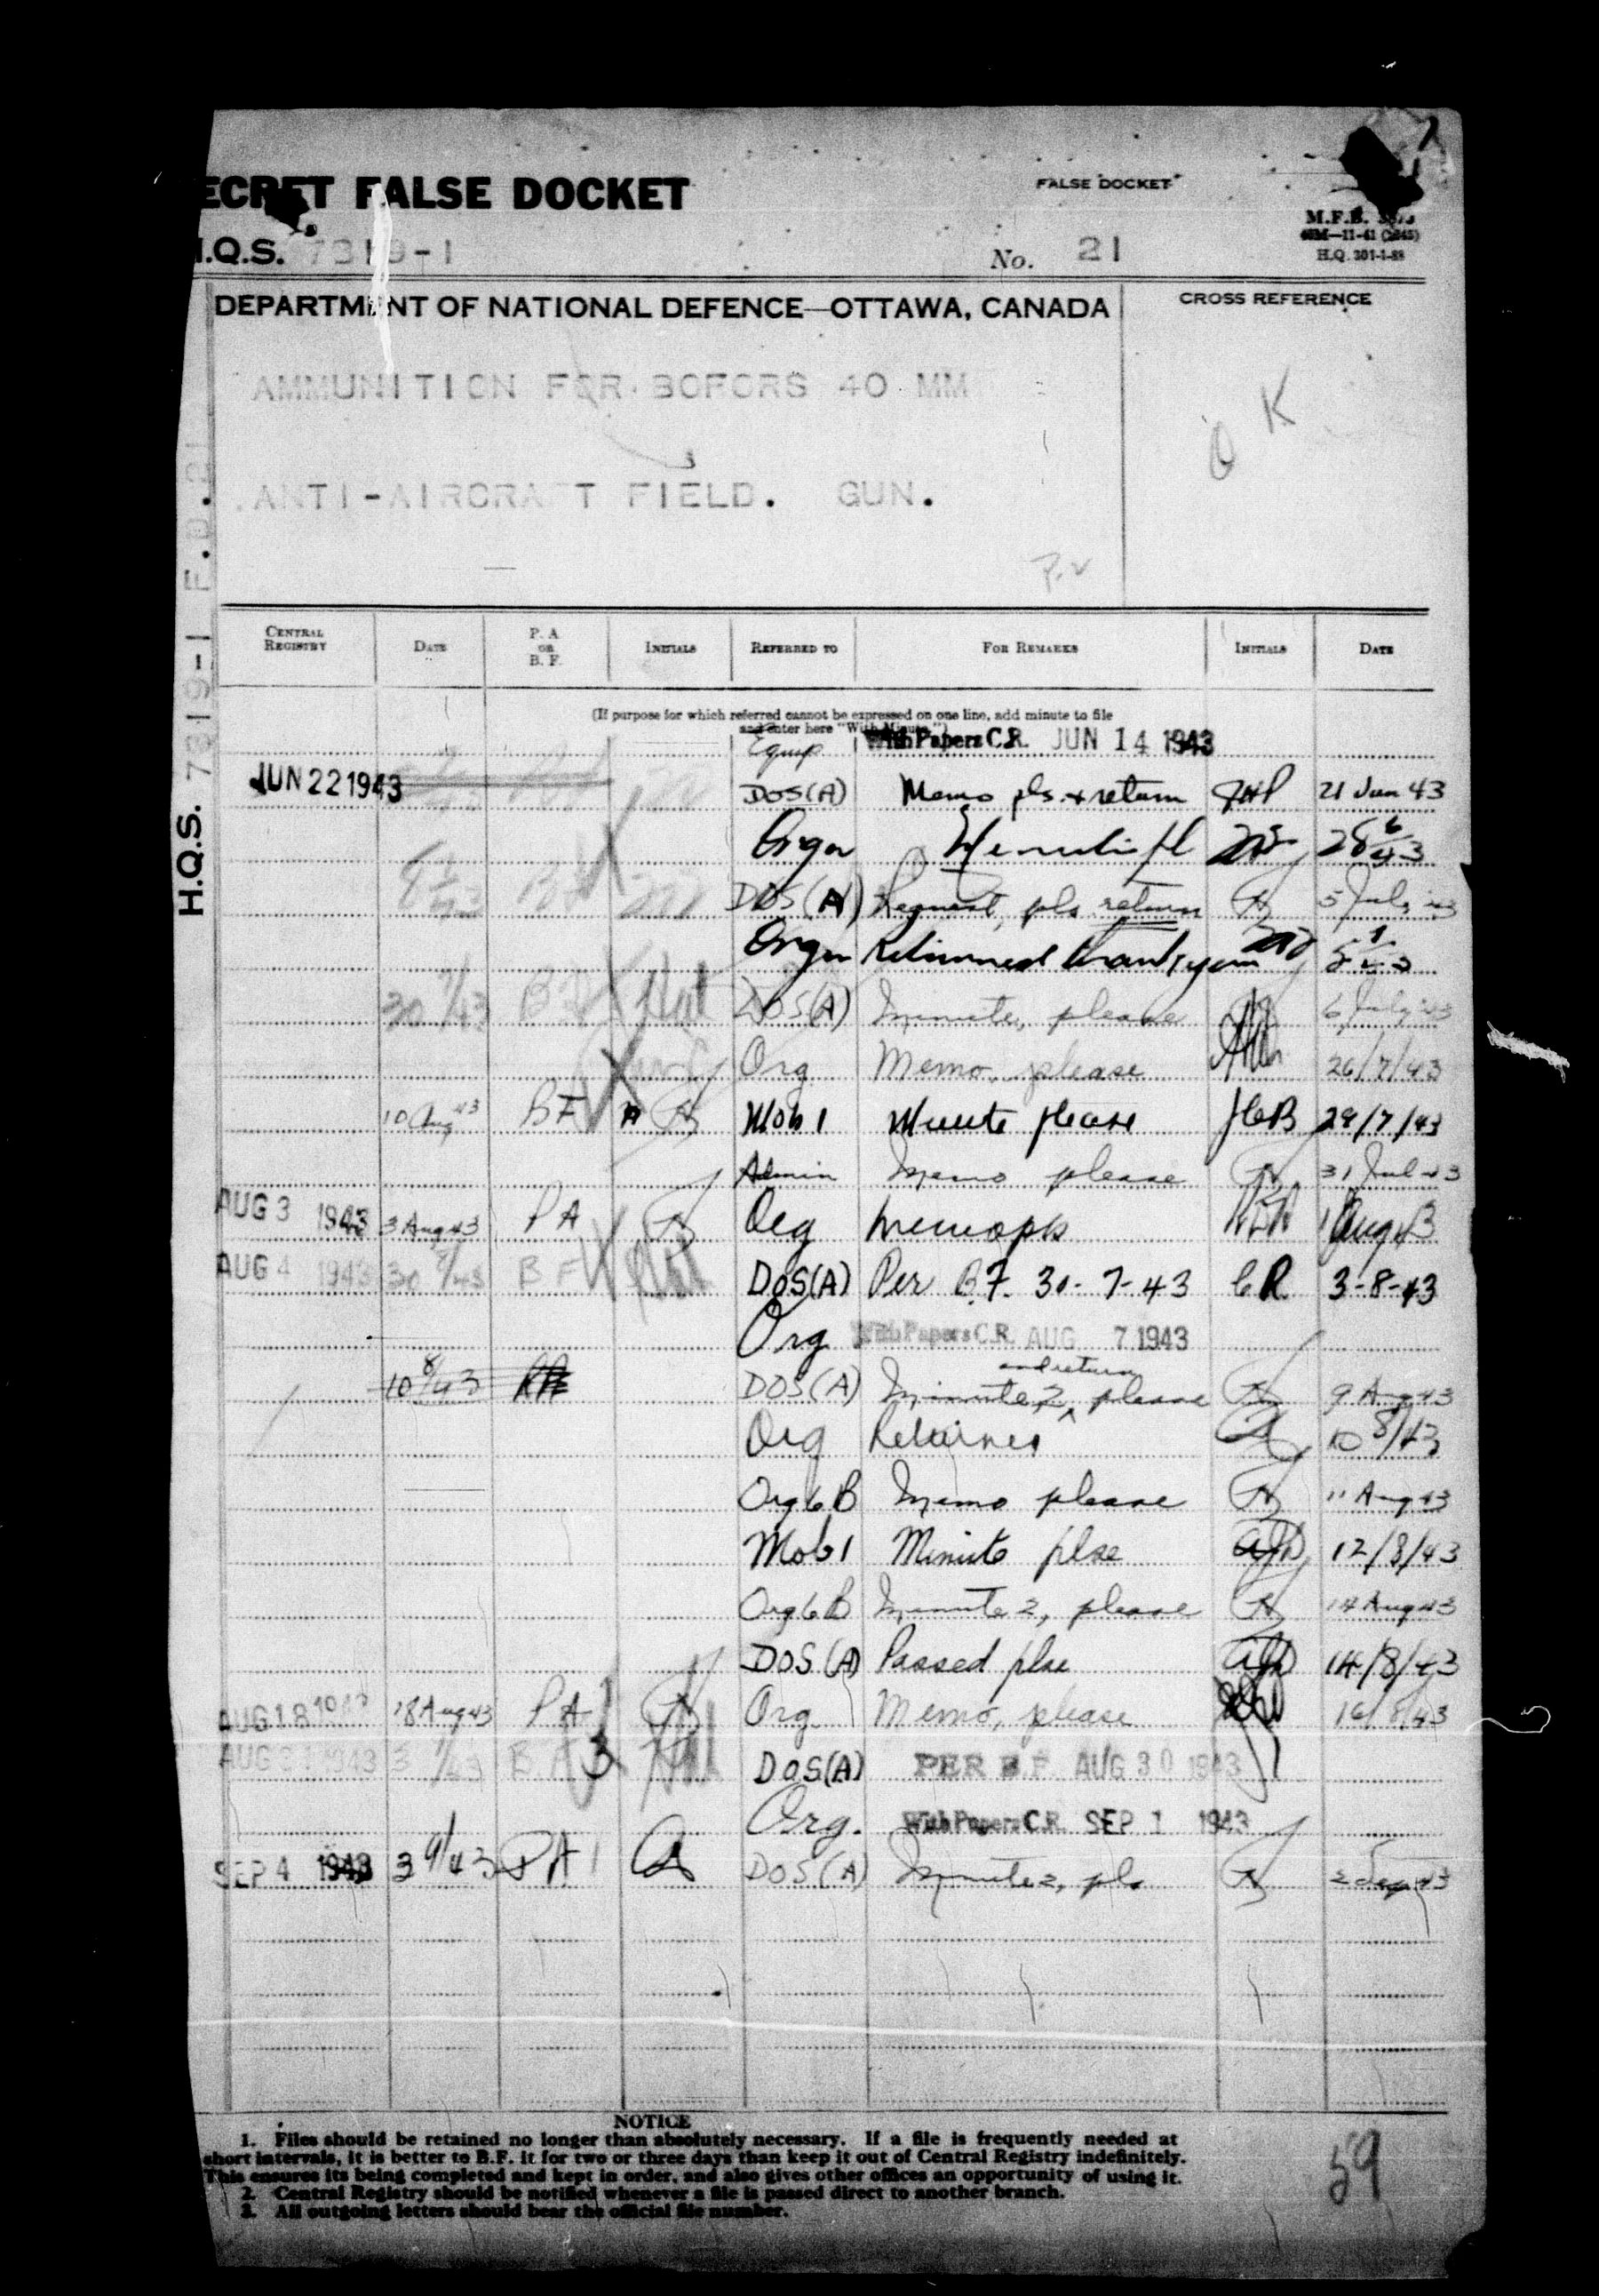 ECRET FALSE DOCKET
FALSE DOCKET
M.F.B.
40M—11-41 (2645)
H.Q. 301-1-88
.Q.S. 7319-1
No. 21
DEPARTMENT OF NATIONAL DEFENCE—OTTAWA, CANADA
CROSS REFERENCE
AMMUNITION FOR BOFORS 40 MM
O K
ANTI-AIRCRAFT FIELD. GUN.
H.Q.S. 7319-1 F.D.21
CENTRAL REGISTRY DATE P. A OR B. F. INITIALS REFERRED TO FOR REMARKS INITIALS DATE
(If purpose for which referred cannot be expressed on one line, add minute to file
and enter here "With Minute.")
Equip With Papers C.R. JUN 14 1943
JUN 22 1943 DOS(A) Memo pls. & return 21 Jun 43
Orgn 28 6/43
DOS(A) Request, pls return 5 July 43
Orgn Returned thank you
30 7/43 BF DOS(A) Minute, please 6 July 43
Org Memo, please 26/7/43
10 Aug 43 BF Mob 1 Minute please 29/7/43
Admin Memo please 31 Jul 43
AUG 3 1943 3 Aug 43 PA Org memo pls 1 Aug 43
AUG 4 1943 30 8/43 BF DOS(A) Per B.F. 30-7-43 CR 3-8-43
Org With Papers C.R. AUG 7 1943
10 8/43 DOS(A) Minute 2, and return please 9 Aug 43
Org Returned 10 8/43
Org 6B Memo please 11 Aug 43
Mob 1 Minute plse 12/8/43
Org 6B Minute 2, please 14 Aug 43
DOS(A) Passed plse 14/8/43
AUG 18 1943 18 Aug 43 PA Org Memo, please 16/8/43
AUG 31 1943 BF DOS(A) PER B.F. AUG 30 1943
Org. With Papers C.R. SEP 1 1943
SEP 4 1943 3 9/43 PA DOS(A) Minute 2, pls 2 Sep 43
NOTICE
1. Files should be retained no longer than absolutely necessary. If a file is frequently needed at
short intervals, it is better to B.F. it for two or three days than keep it out of Central Registry indefinitely.
This ensures its being completed and kept in order, and also gives other offices an opportunity of using it.
2. Central Registry should be notified whenever a file is passed direct to another branch.
3. All outgoing letters should bear the official file number.
59